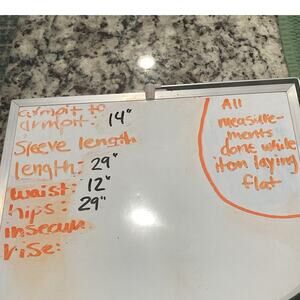 armpit to
armpit: 14"
Sleeve length
length: 29"
waist: 12"
hips: 29"
inseam
rise:
All
measure-
ments
done while
item laying
flat